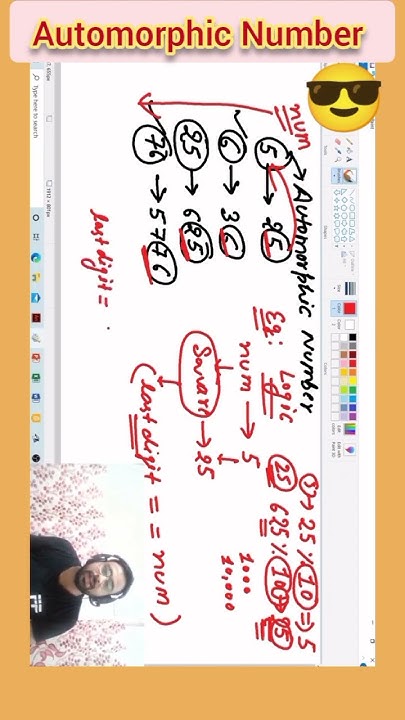 Automorphic Number
Automorphic Number
num
5 → 25
6 → 36
25 → 625
76 → 5776
last digit =
Eg: Logic
num → 5
Square → 25
(last digit == num)
5 → 25 % 10 => 5
25 625 % 100 → 25
1000
10,000
Type here to search
1912 × 801px
Tools
Shapes